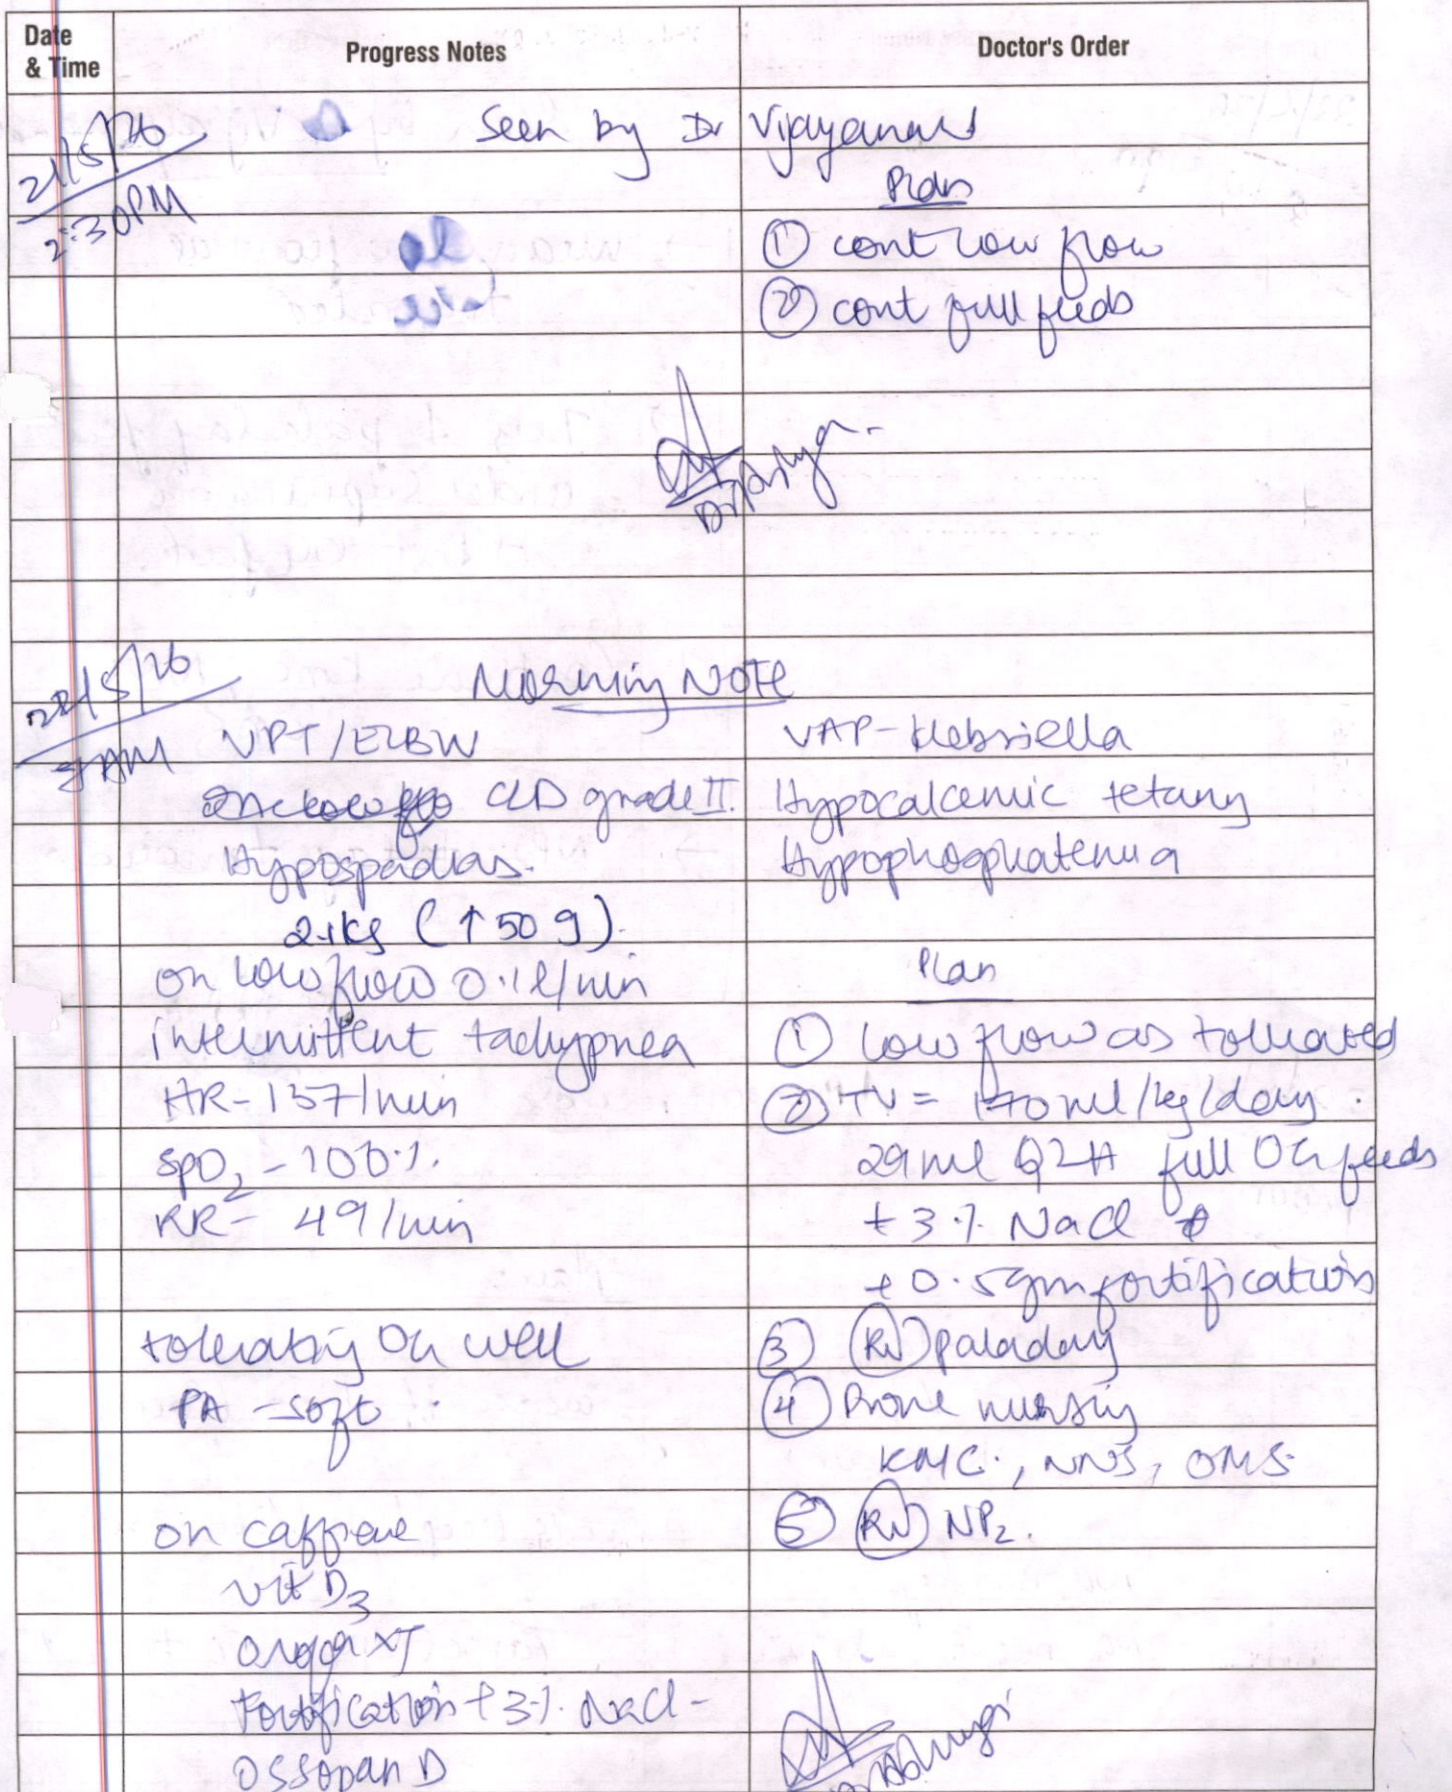 Date & Time Progress Notes Doctor's Order
21/5/26 2:30PM Seen by Dr Vijayanand
Plan
① cont low flow
② cont full feeds
22/5/26 Morning Note
9 AM VPT/ELBW VAP-Klebsiella
CLD grade II. Hypocalcemic tetany
Hypospadias. Hypophosphatemia
2.1kg (↑50 g).
on low flow 0.1l/min Plan
intermittent tachypnea ① low flow as tolerated
HR-137/min ② TV= 170ml/kg/day.
SpO2-100%. 29ml Q2H full OG feeds
RR- 49/min + 3% NaCl
+ 0.5gm fortification
tolerating OG well ③ RV paladay
PA -soft. ④ Prone nursing
KMC., NNS, OMS.
on caffiene ⑤ RV NP2.
vit D3
XT
fortification + 3% NaCl-
Ossopan D